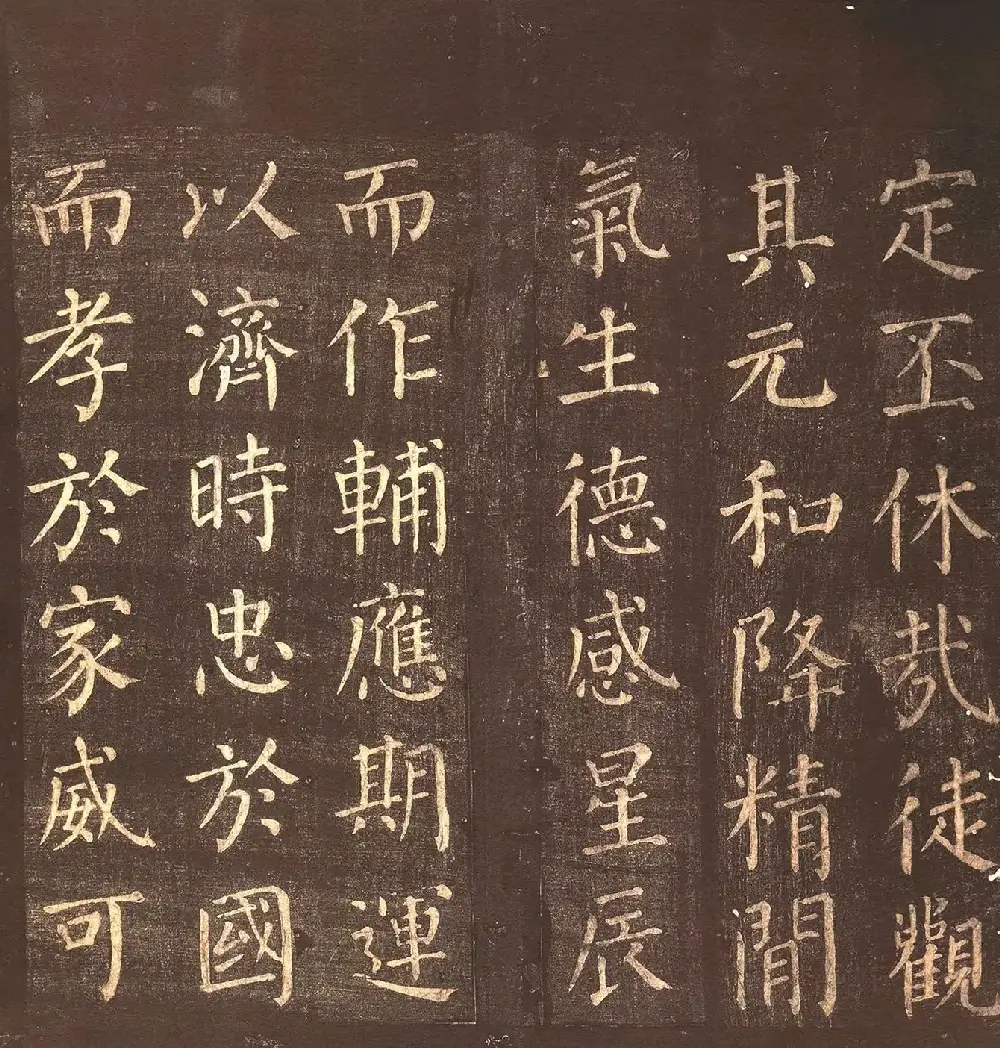 定丕休㢤徒觀
其元和降精閒
氣生德感星辰
而作輔應期運
以濟時忠於國
而孝於家威可